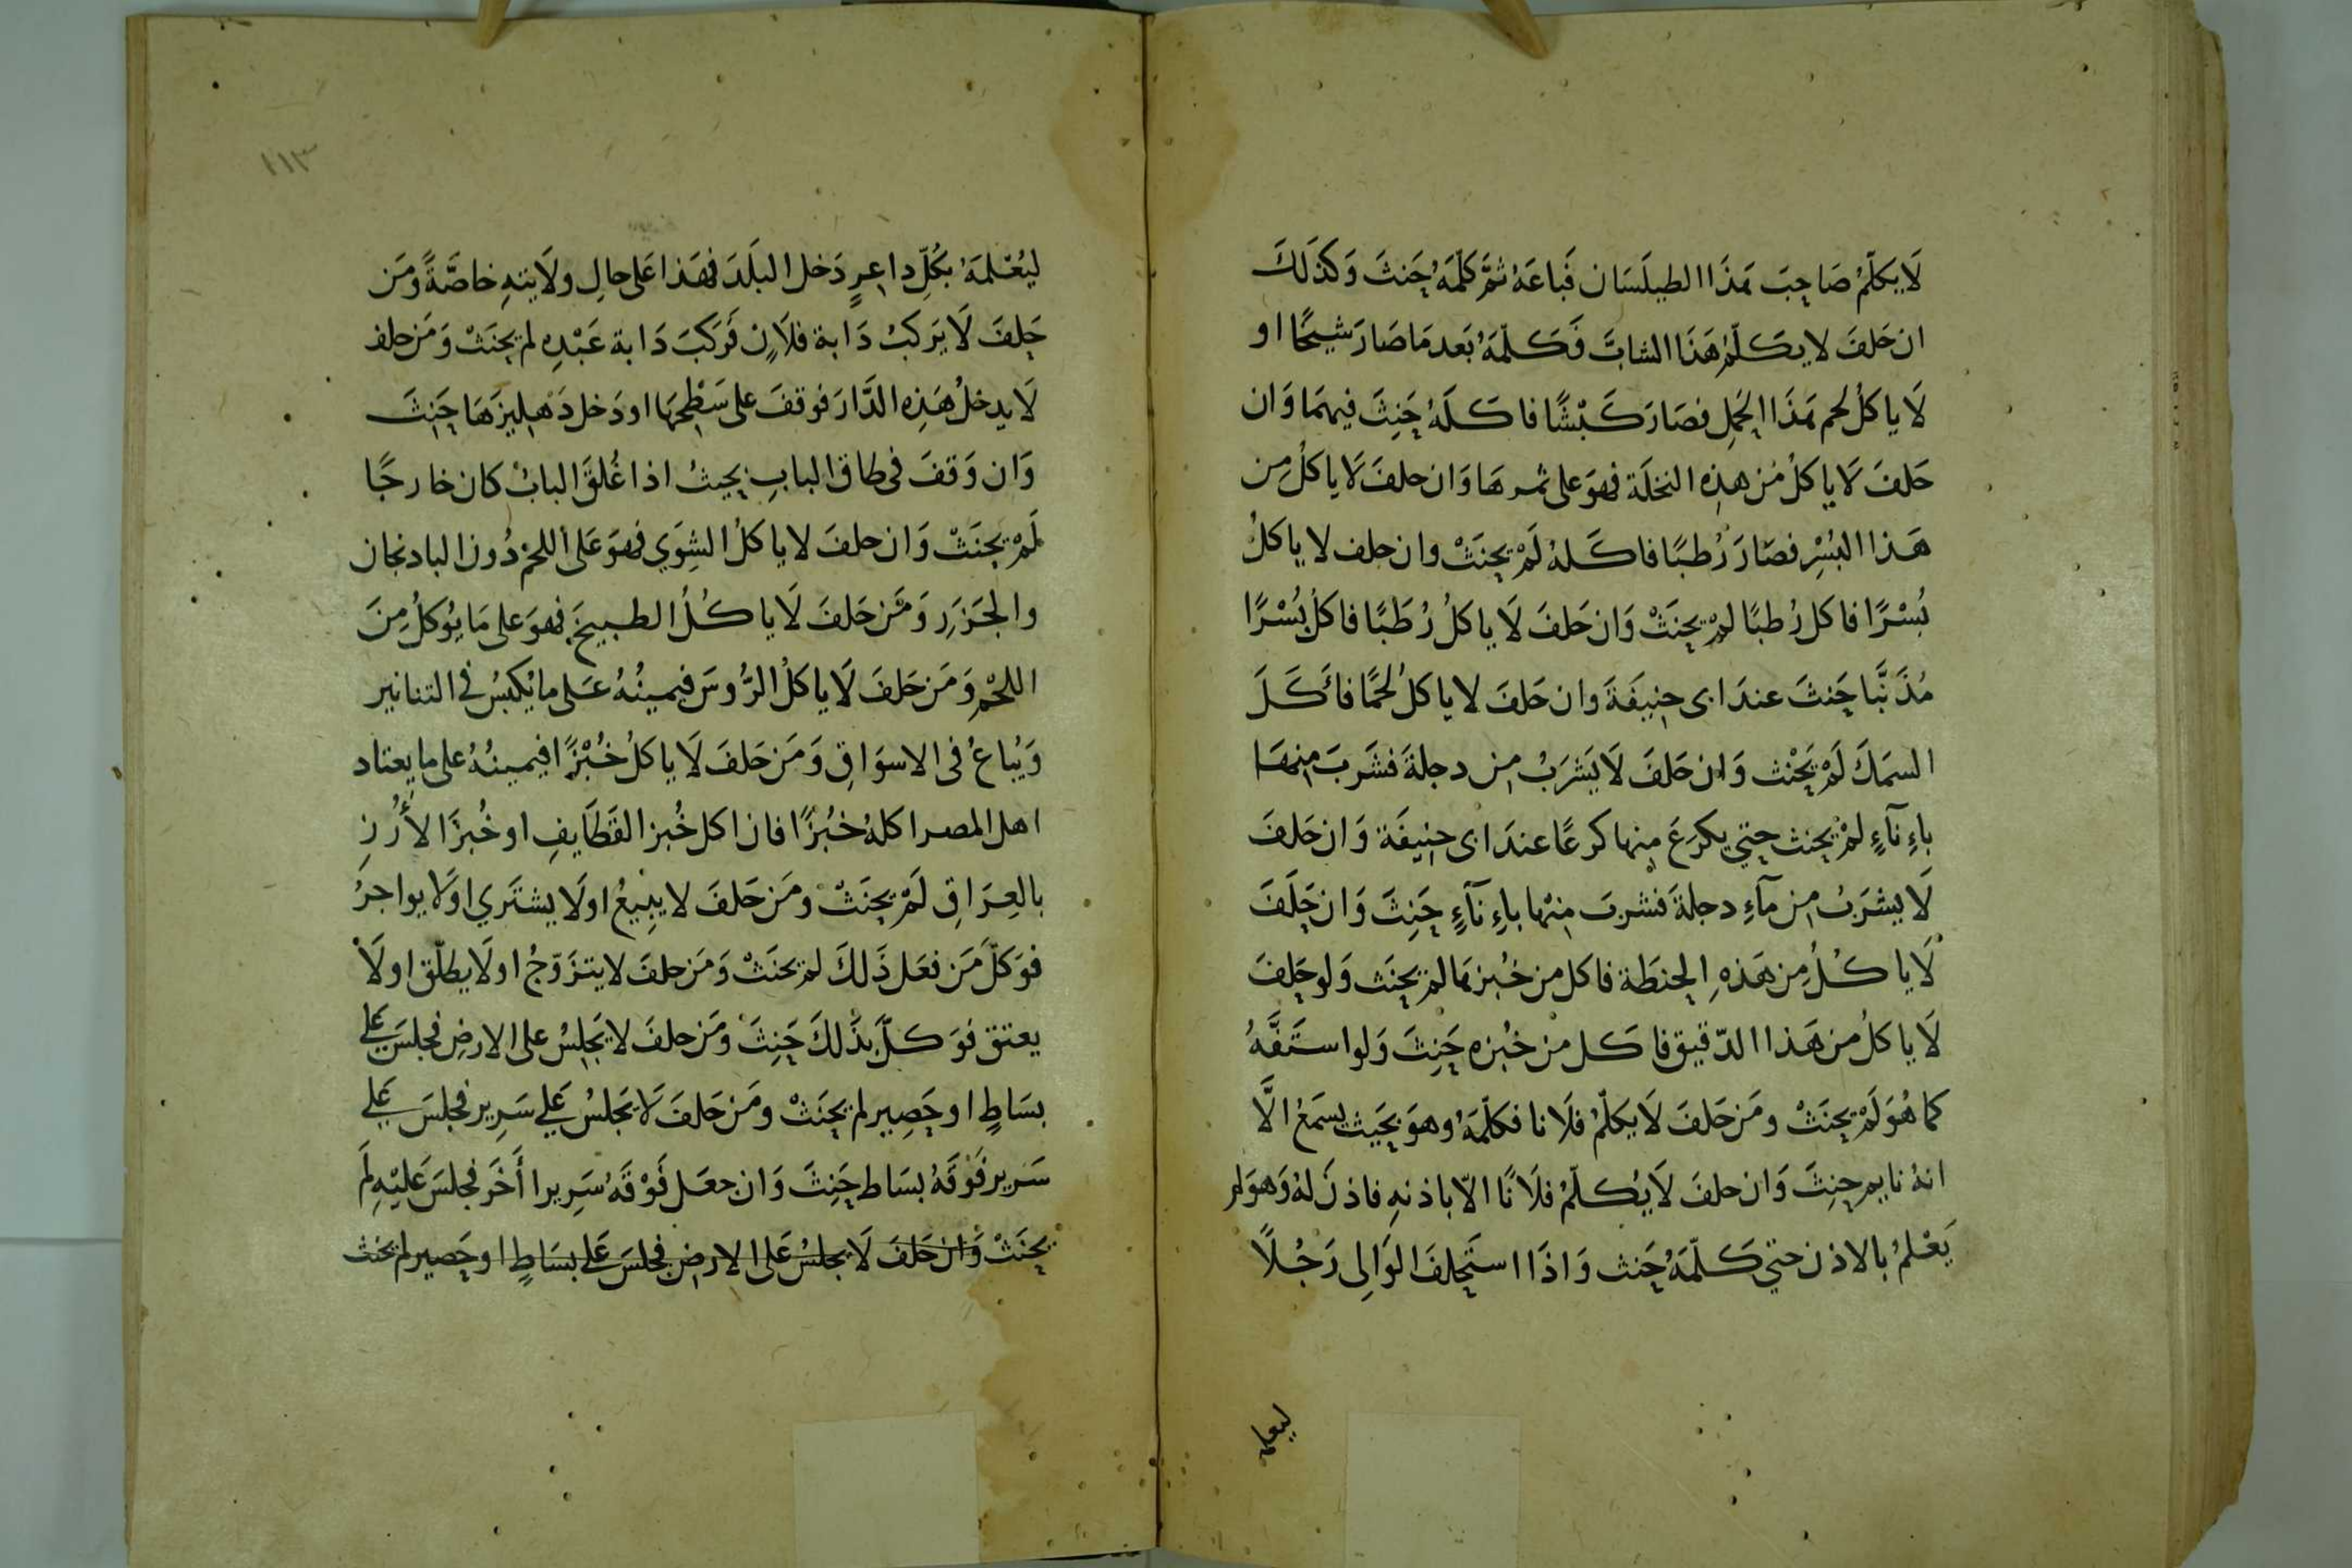 لَا يكلّمُ صَاحِبَ هَذَا الطيلَسَان فَباعَهُ ثمَّ كَلّمَهُ حَنثَ وَكَذَلكَ
ان حَلفَ لا يكَلّمُ هَذَا الشابَّ فَكَلّمَهُ بَعد مَا صَارَ شيخًا او
لَا ياكلُ لحم هَذَا الحَمل فصَارَ كَبْشًا فاكَلَهُ حَنِثَ فيهمَا وَان
حَلفَ لَا ياكلُ مِن هذِهِ النخلَة فهوَ على ثمرهَا وَان حلفَ لَا ياكلُ مِن
هَذا البُسْرِ فصَارَ رُطبًا فاكَلهُ لَمْ يحنَثْ وان حلف لا ياكلُ
بُسْرًا فاكل رُطبًا لمْ يحنَثْ وَان حَلفَ لَا ياكلُ رُطَبًا فاكلَ بُسْرًا
مُذَنَّبا حَنثَ عندَ ابى حنِيفَةَ وان حَلفَ لا ياكلُ لحمًا فأكَلَ
السمَكَ لَمْ يَحْنث وَان حَلفَ لَا يَشرَبُ مِن دجلةَ فشَربَ مِنهَا
باءِنآءٍ لمْ يحنث حتي يكرَعَ مِنها كرعًا عندَ ابى حنِيفَة وَان حَلفَ
لَا يشرَبُ مِن مآءِ دجلةَ فشربَ مِنْها باءِنآءٍ حَنِثَ وَان حَلَفَ
لَا ياكُلُ مِن هَذهِ الحنطَة فاكل مِن خُبزهَا لمْ يحنَث وَلو حَلفَ
لَا ياكلُ مِن هَذا الدّقيق فاكَل من خُبزه حَنِثَ وَلو استَفَّهُ
كما هُوَ لَمْ يحنَثْ ومَن حَلفَ لَا يكلّمُ فلَانا فكلّمَهُ وهوَ بحَيث يسمَعُ الَّا
انهُ نايم حنِثَ وَان حلفَ لَا يُكلّمُ فلَانًا الّا باذنهِ فاذنَ لهُ وَهوَ لم
يَعْلمُ بالاذن حتي كَلّمَهُ حَنث وَاذَا استَحلفَ الوَالِى رَجُلًا
ليعلمه
١١٣
ليُعْلمَهُ بكُلِّ داعرٍ دَخل البلَدَ فهَذا عَلى حالِ ولَايتهِ خاصَّةً وَمَن
حَلفَ لَا يَركبُ دَابة فلَانٍ فَرَكبَ دَابة عَبْدِهِ لم يحنَثْ وَمَن حلف
لَا يدخلُ هَذِهِ الدَّارَ فوقفَ على سَطْحِهَا او دَخل دَهليزهَا حَنِثَ
وَان وَقفَ فى طاق البابِ بحيثُ اذا غُلقَ البابُ كان خارجًا
لَمْ يحنَثْ وَان حلفَ لا ياكلُ الشِوَي فهوَ عَلى اللحْم دُون البادنجان
والجَزَرِ وَمَن حَلفَ لَا ياكُلُ الطبيخَ فهوَ على مَا يُوكلُ مِنَ
اللحْمِ وَمَن حَلفَ لَا ياكلُ الرُّوسَ فيمينُهُ عَلى ما يُكبسُ فى التنانير
وَيُباعُ فى الاسوَاقِ وَمَن حَلفَ لَا ياكلُ خُبْزًا فيمينُهُ على ما يعتاد
اهل المصر اكلهُ خبُزًا فان اكل خُبز القَطَايفِ او خُبزَ الأَرُزِ
بالعِرَاقِ لَمْ يحنَثْ ومَن حَلفَ لا يبِيعُ او لَا يشتَري او لَا يواجرُ
فوَكلَّ مَن فعَل ذَلكَ لمْ يحنَثْ وَمَن حلفَ لا يتزَوّجُ او لَا يطلّق او لَا
يعتق فوَكلَّ بذَلكَ حَنِثَ ومَن حلفَ لا يَجلِسُ على الارضِ فجلسَ عَلي
بسَاطٍ او حَصِير لم يحنَثْ ومَن حَلفَ لَا يَجلسُ عَلي سَرِير فجلسَ عَلي
سَرير فَوْقَهُ بسَاط حَنِثَ وَان جعَل فَوْقَهُ سَرِيرا أَخَر فجلسَ عَليْهِ لَم
يحنَثْ وَان حَلفَ لَا يجلسُ عَلى الارض فجلسَ عَلي بسَاطٍ او حَصير لم يحنث